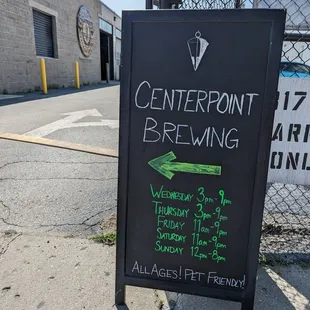 CENTERPOINT
BREWING
WEDNESDAY 3pm-9pm
THURSDAY 3pm-9pm
FRIDAY 11am-9pm
SATURDAY 11am-9pm
SUNDAY 12pm-8pm
ALL AGES! PET FRIENDLY!
17